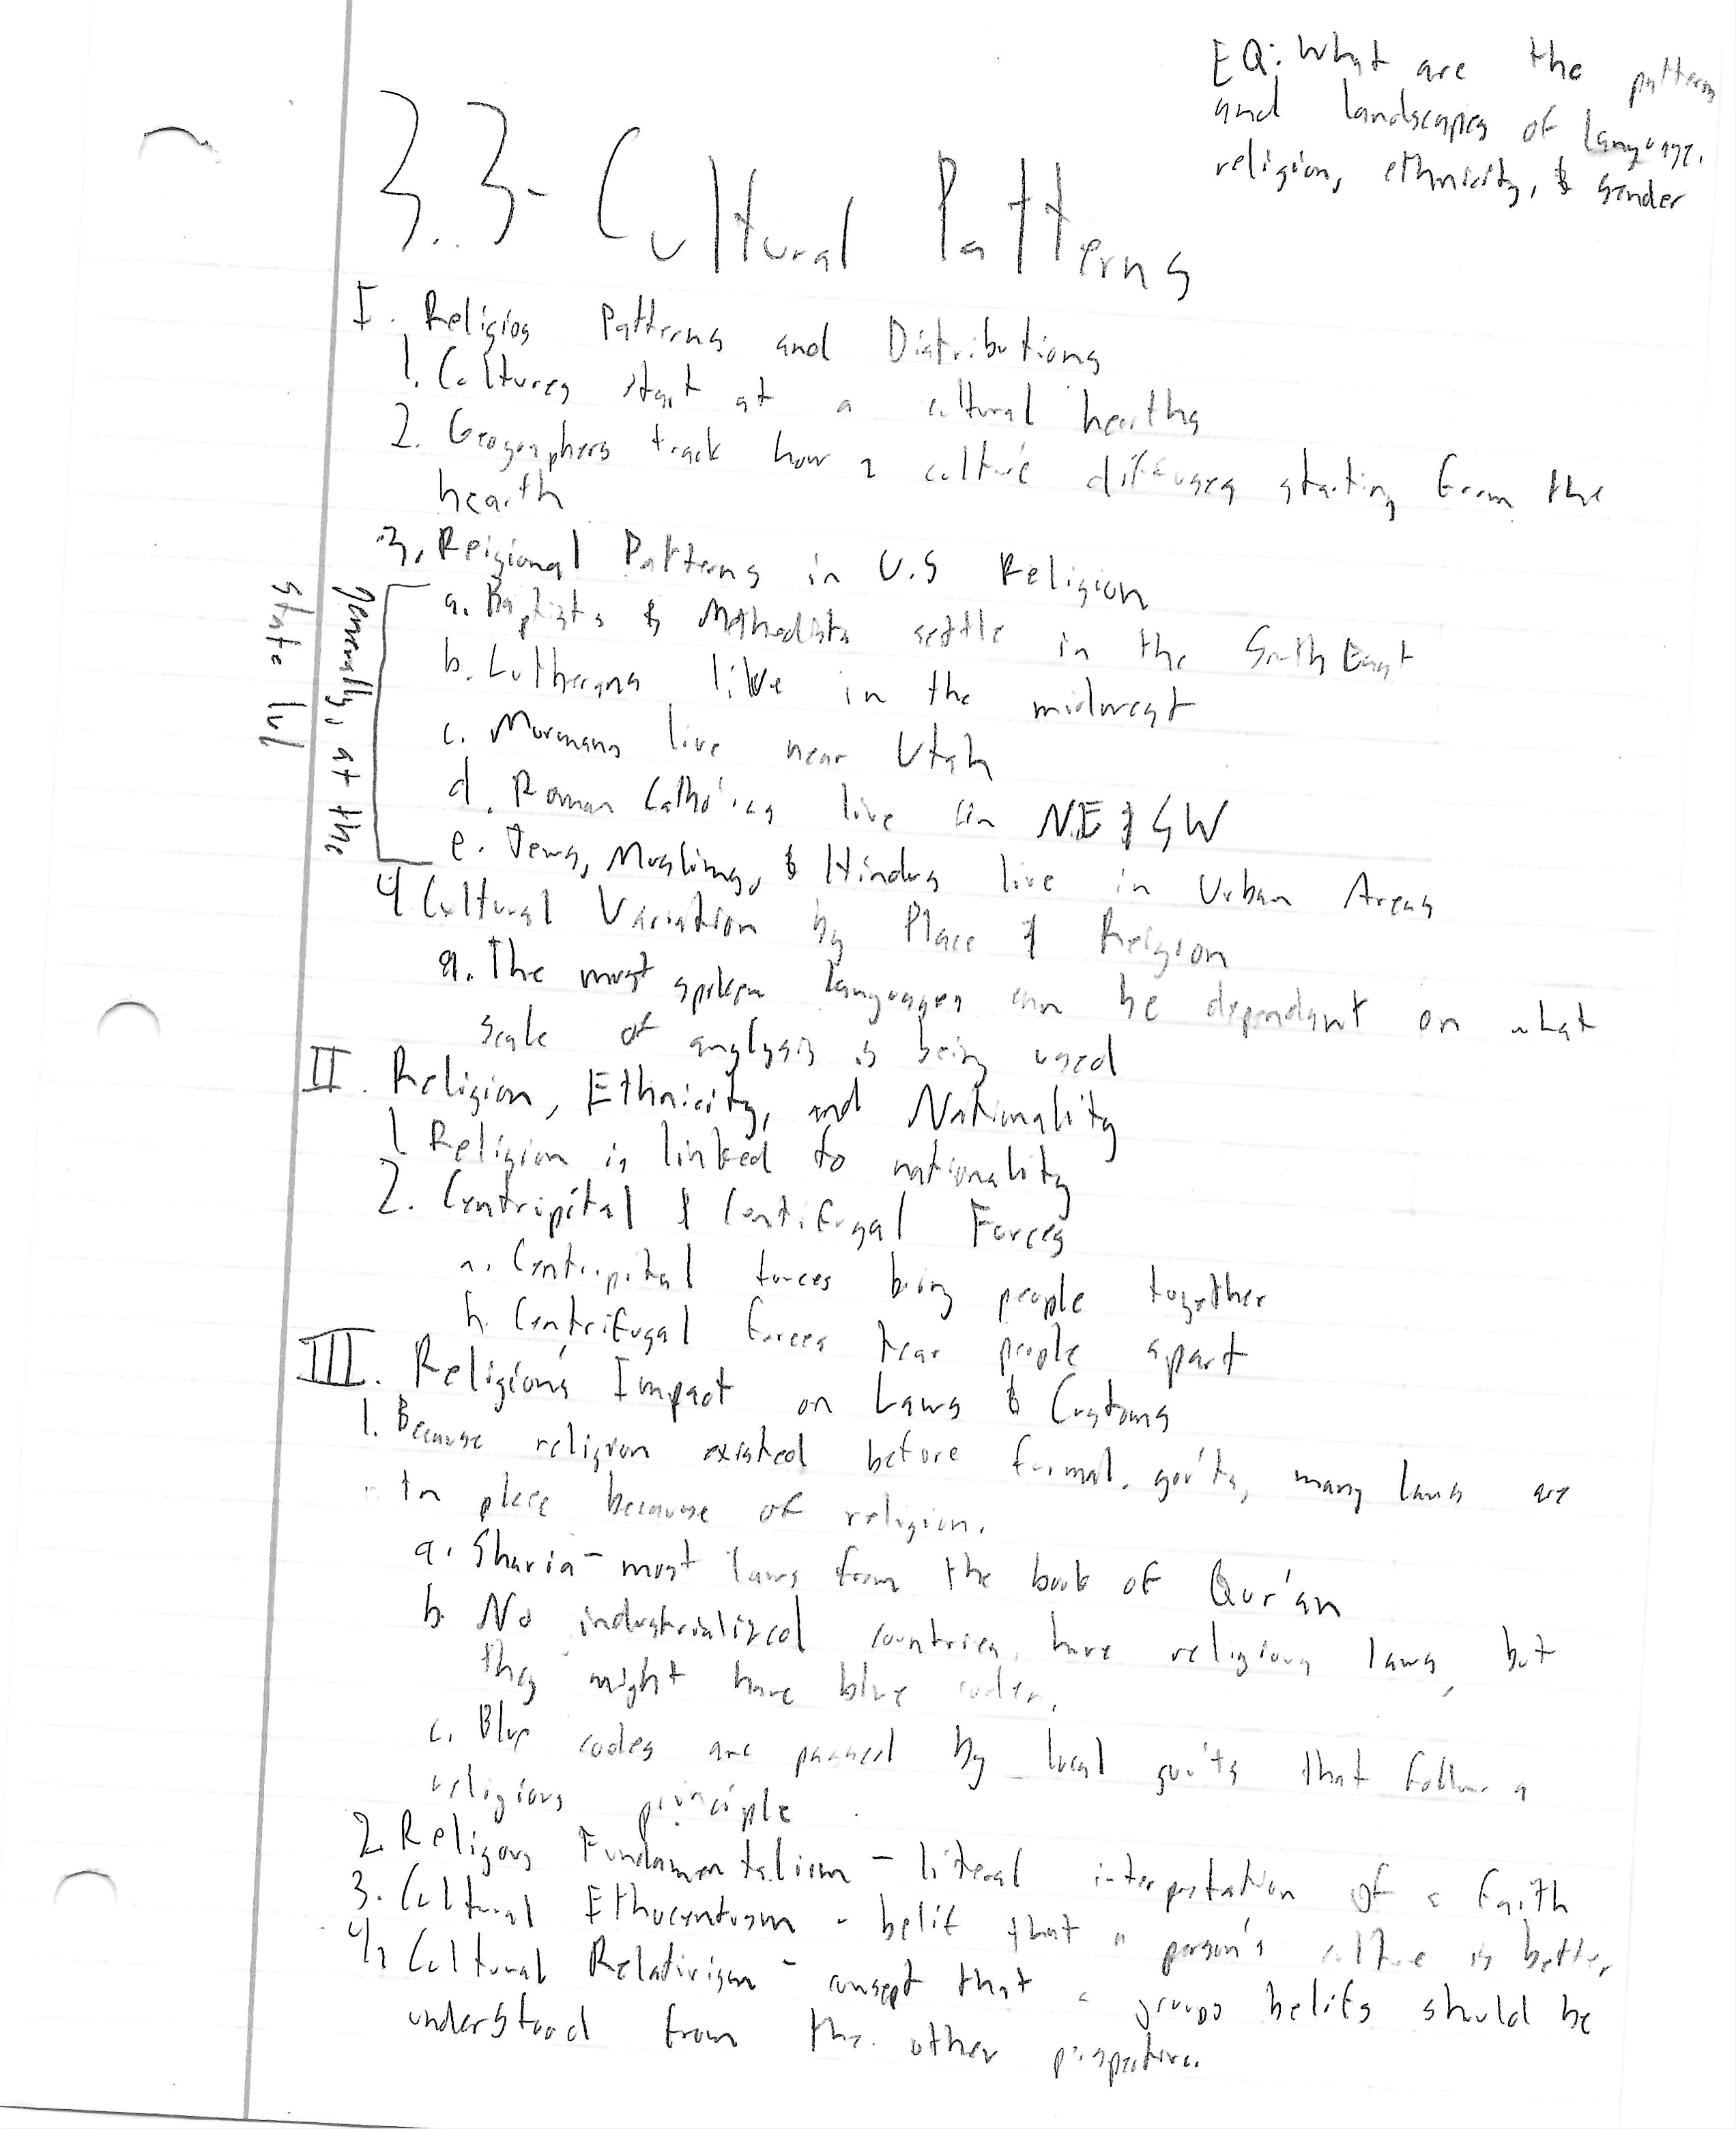 EQ: What are the patterns
and landscapes of language,
religion, ethnicity, & gender
3.3- Cultural Patterns
I. Religios Patterns and Distributions
1. Cultures start at a cultural hearths
2. Geographers track how a culture diffuses starting from the
hearth
3. Reigional Patterns in U.S Religion
generally, at the
state lvl
a. Baptists & Methodists settle in the SouthEast
b. Lutherans live in the midwest
c. Mormans live near Utah
d. Roman Catholics live in NE & SW
e. Jews, Muslims, & Hindus live in Urban Areas
4 Cultural Variation by Place & Reigion
a. The most spoken languages can be dependant on what
scale of analysis is being used
II. Religion, Ethnicity, and Nationality
1 Religion is linked to nationality
2. Centripital & Centifugal Forces
a. Centripital forces bring people together
b. Centrifugal forces tear people apart
III. Religion's Impact on Laws & Customs
1. Because religion existed before formal gov'ts, many laws are
in place because of religion.
a. Sharia - most laws from the book of Qur'an
b. No industrialized countries have religious laws, but
they might have blue codes.
c. Blue codes are passed by local gov'ts that follow a
religious principle
2. Religous Fundamentalism - literal interpretation of a faith
3. Cultural Ethnocentrism - belif that a person's culture is better
4. Cultural Relativism - consept that a groups belifs should be
understood from the other perspective.